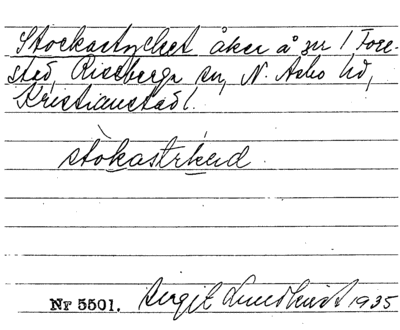 Stockastycket åker å nr 1 Fore-
stad, Riseberga sn, N. Asbo hd,
Kristianstads l.
stòkastrked
Nr 5501. Bengt Lundkvist 1935